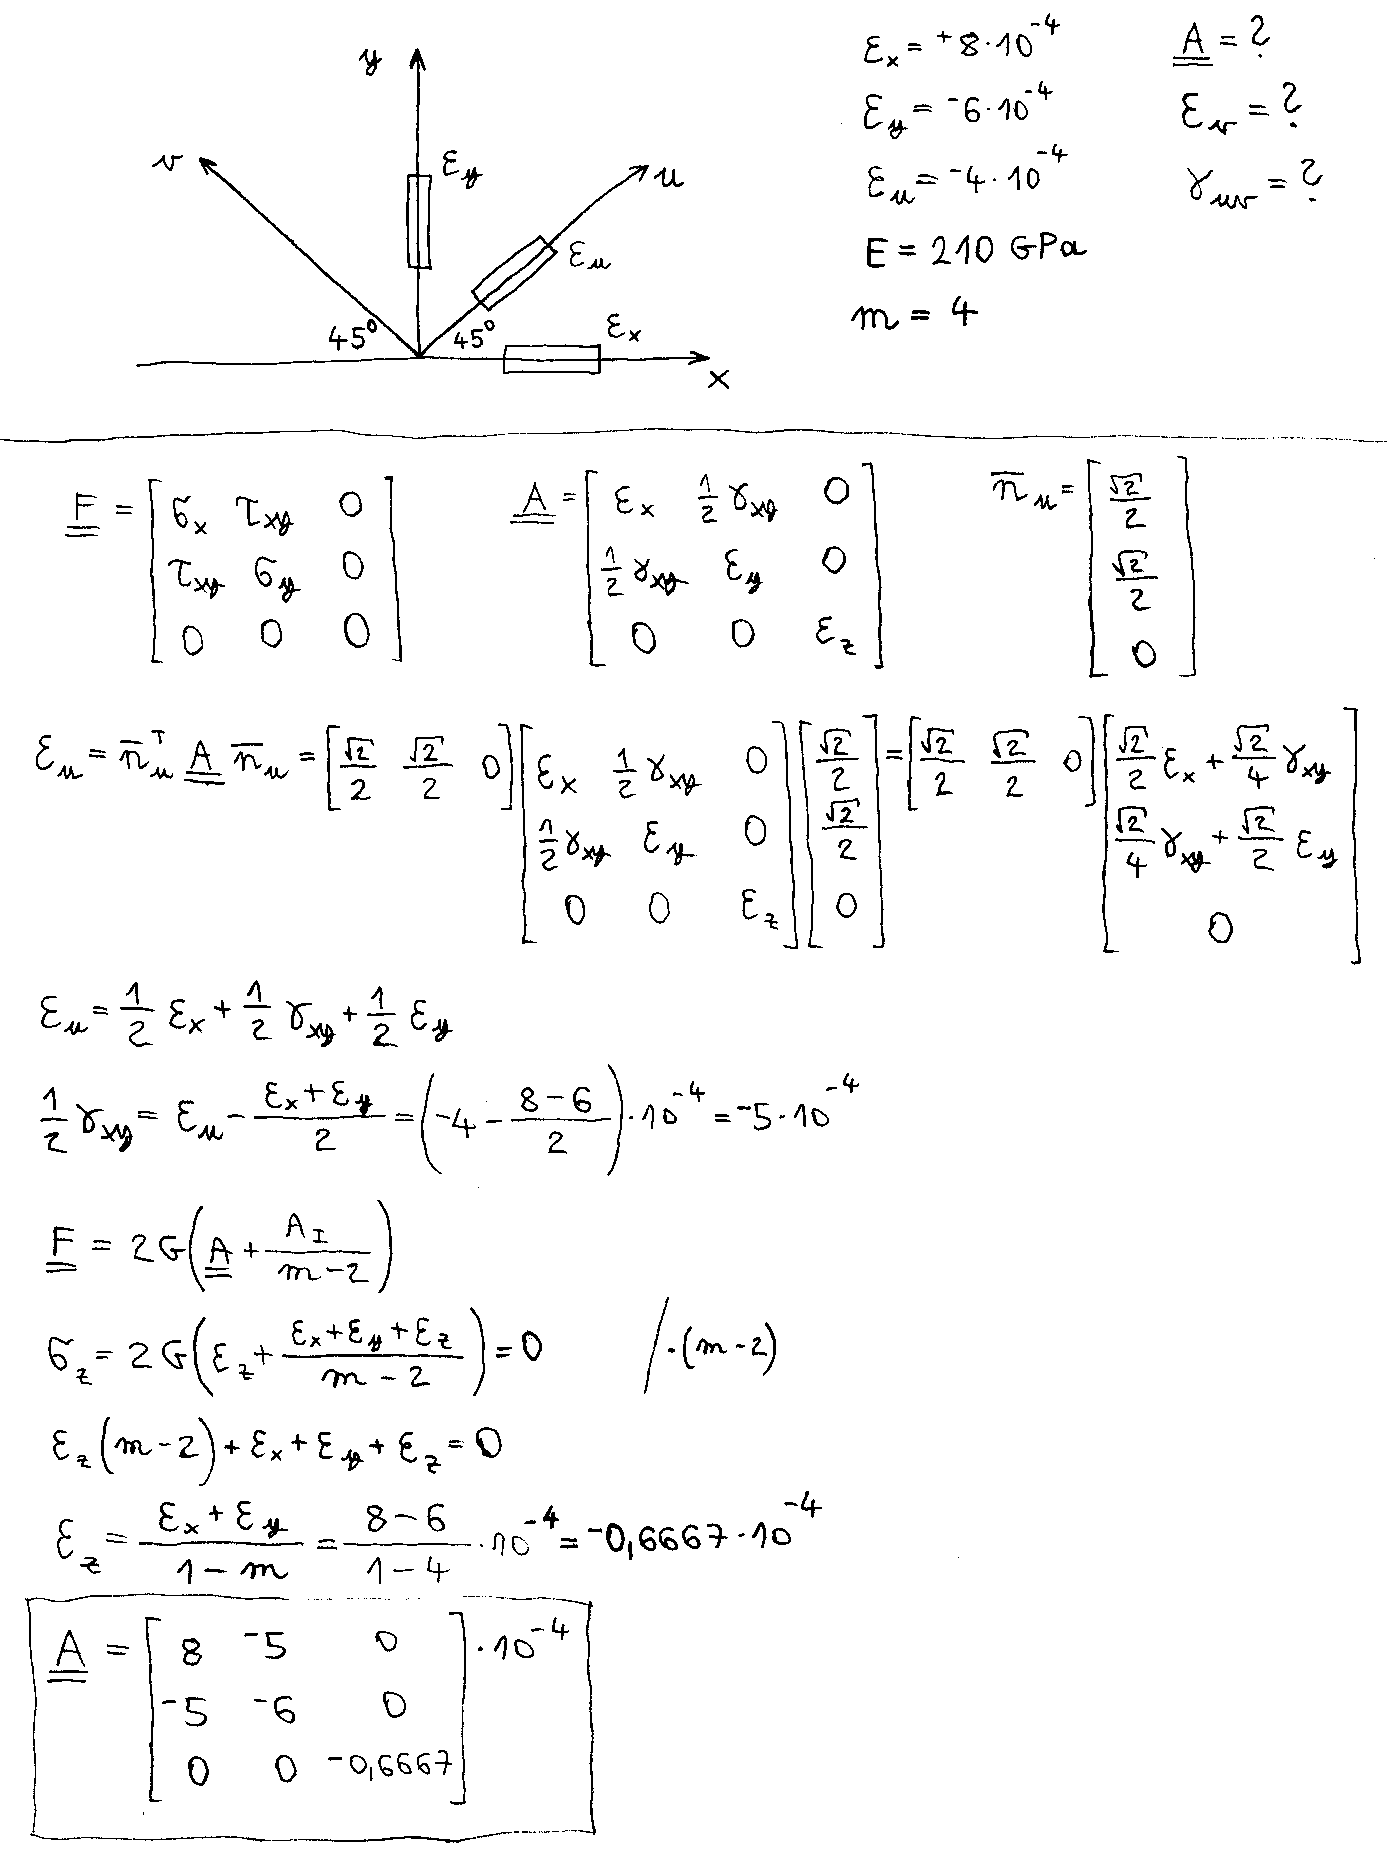 y
εx = +8·10⁻⁴ A = ?
εy = -6·10⁻⁴ εv = ?
εu = -4·10⁻⁴ γuv = ?
E = 210 GPa
m = 4
v
εy
u
εu
45° 45° εx
x
F = [σx τxy 0; τxy σy 0; 0 0 0] A = [εx 1/2 γxy 0; 1/2 γxy εy 0; 0 0 εz] n̄u = [√2/2; √2/2; 0]
εu = n̄uᵀ A n̄u = [√2/2 √2/2 0] [εx 1/2 γxy 0; 1/2 γxy εy 0; 0 0 εz] [√2/2; √2/2; 0] = [√2/2 √2/2 0] [√2/2 εx + √2/4 γxy; √2/4 γxy + √2/2 εy; 0]
εu = 1/2 εx + 1/2 γxy + 1/2 εy
1/2 γxy = εu - (εx + εy)/2 = (-4 - (8-6)/2)·10⁻⁴ = -5·10⁻⁴
F = 2G(A + A_I/(m-2))
σz = 2G(εz + (εx + εy + εz)/(m-2)) = 0 /·(m-2)
εz(m-2) + εx + εy + εz = 0
εz = (εx + εy)/(1-m) = (8-6)/(1-4)·10⁻⁴ = -0,6667·10⁻⁴
A = [8 -5 0; -5 -6 0; 0 0 -0,6667]·10⁻⁴